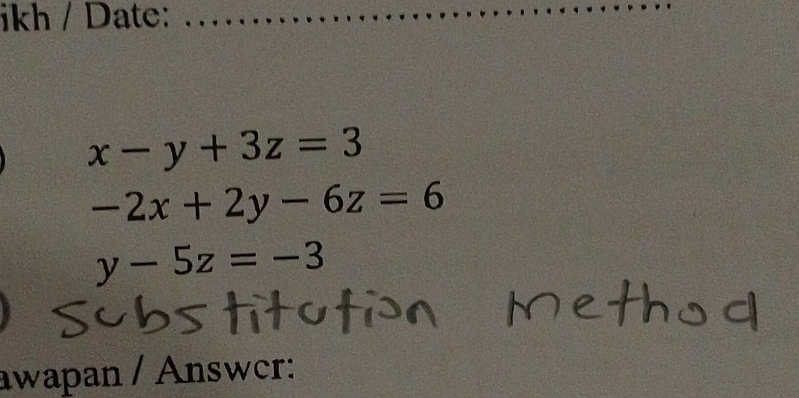 ikh / Date: ........................................
) x − y + 3z = 3
−2x + 2y − 6z = 6
y − 5z = −3
) substitution method
awapan / Answer: